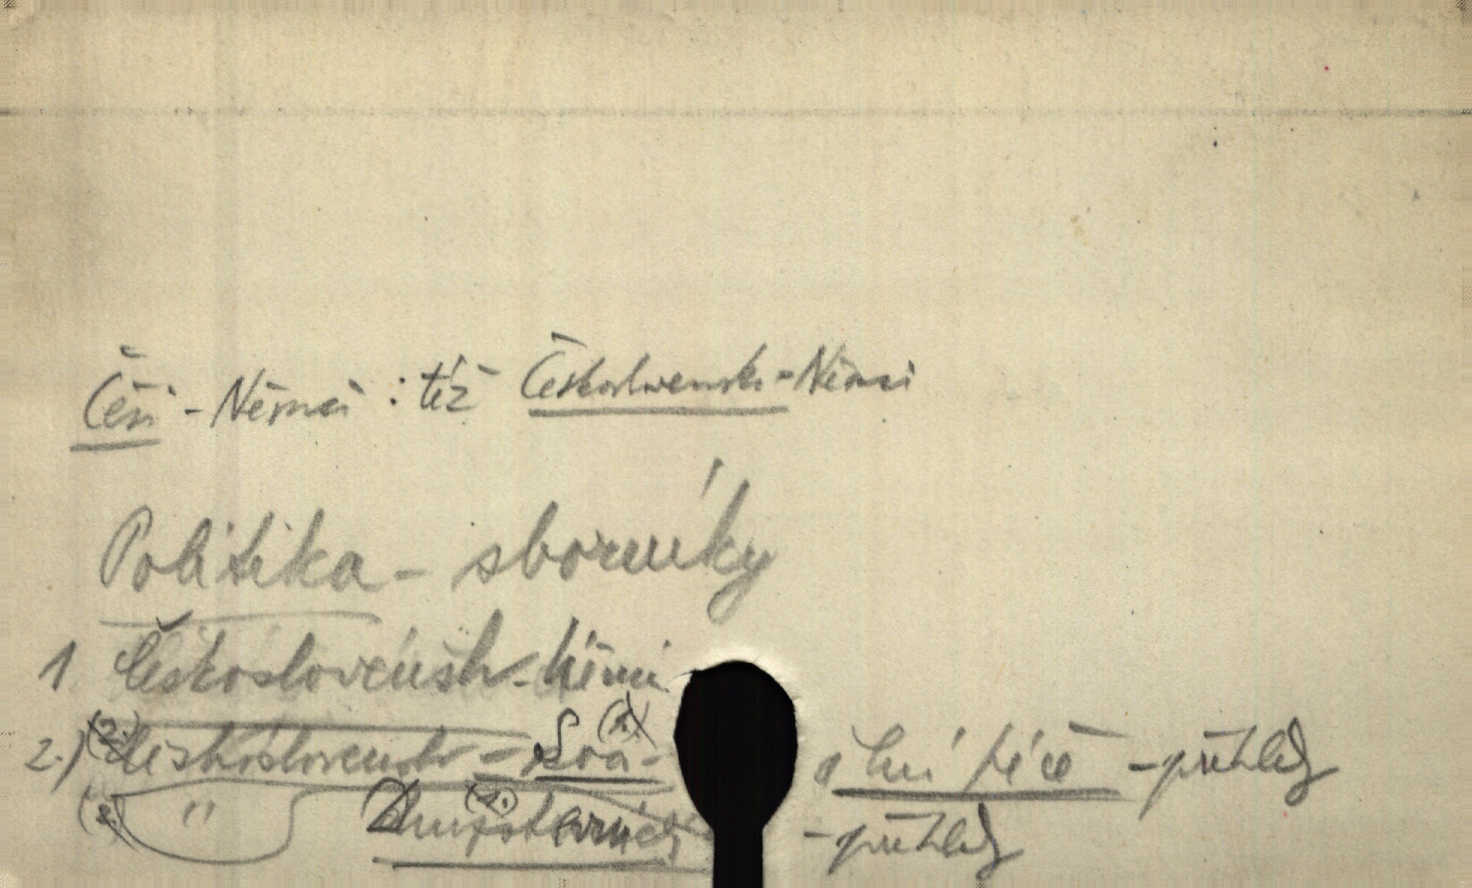 Češi - Němci : též Československo - Němci
Politika - sborníky
1 Československo - Němci
2.) (2.) Československo - Soci- ální péče - přehledy
(2.) " (1.) - přehledy